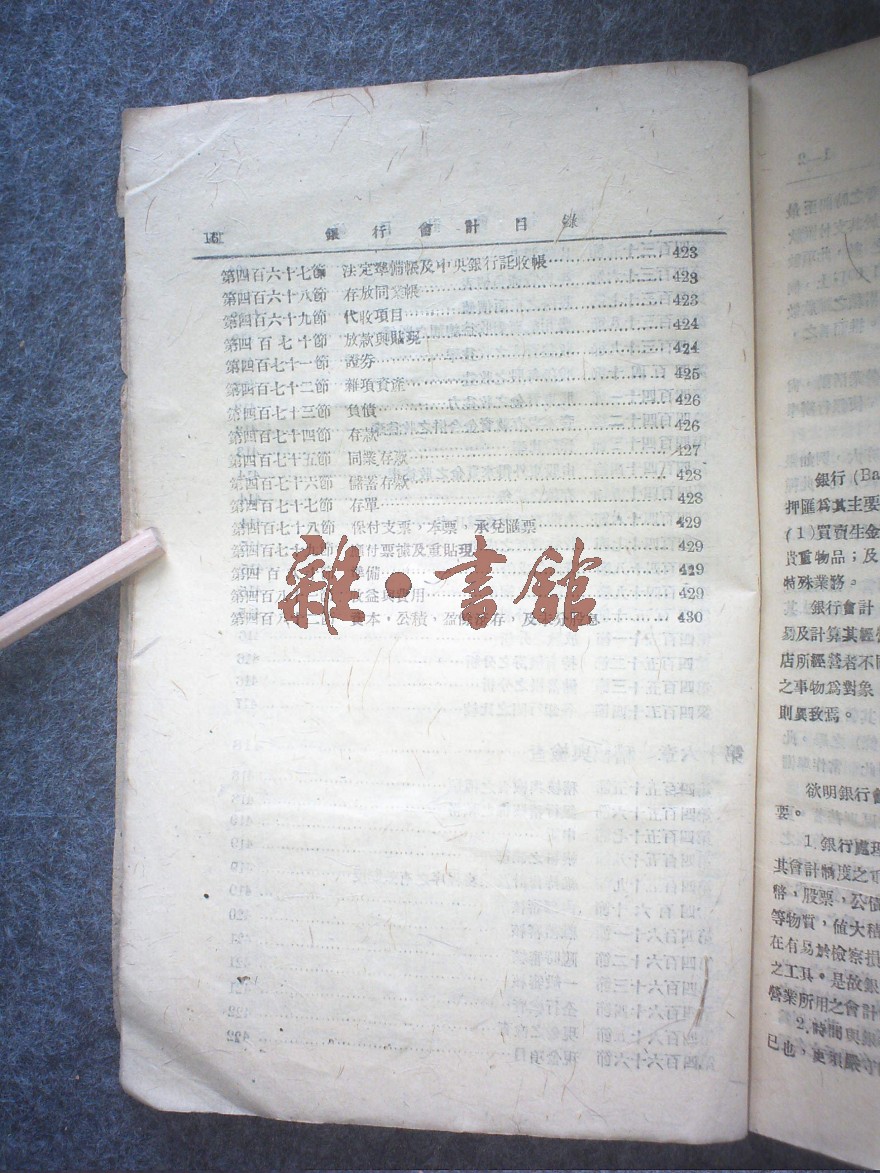 銀行會計目錄
第四百六十七節 法定準備帳及中央銀行託收帳 423
第四百六十八節 存放同業帳 423
第四百六十九節 代收項目 423
第四百七十節 放款與貼現 424
第四百七十一節 證券 424
第四百七十二節 雜項資產 425
第四百七十三節 負債 426
第四百七十四節 存款 426
第四百七十五節 同業存款 427
第四百七十六節 儲蓄存款 428
第四百七十七節 存單 428
第四百七十八節 保付支票,本票,承兌匯票 429
第四百七十九節 付票據及重貼現 429
第四百 備 429
第四百八十一 益與費用 429
第四百八十二 資本,公積,盈餘 存,及 息 430
雜·書館
銀行 (Ba
押匯爲其主要
(1)買賣生金
貴重物品;及
特殊業務。
銀行會計
易及計算其經
店所經營者不同
之事物爲對象
則異致焉。
欲明銀行會
要。
1.銀行處理
其會計制度之
幣,股票,公債
等物質,值大積
在有易於檢察損
之工具。是故銀
營業所用之會計
2.時間與銀
已也,更須嚴守